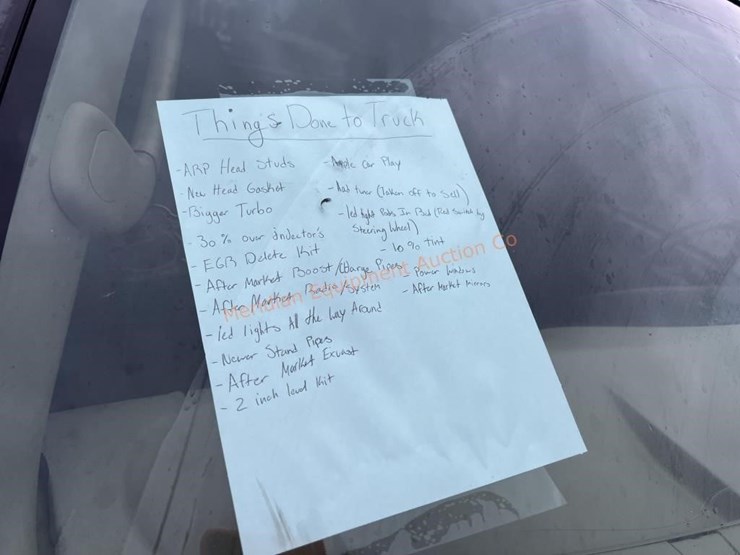 Things Done to Truck
- ARP Head Studs
- New Head Gasket
- Bigger Turbo
- 30% over injector's
- EGR Delete Kit
- After Market Boost/Charge Pipes
- After Market Radio/System
- led lights All the Way Around
- Newer Stand Pipes
- After Market Exuast
- 2 inch level Kit
- Apple Car Play
- Hot tuner (Taken off to Sell)
- led light Pods In Bed (Red Switch by
Steering Wheel)
- 10% tint
- Power Windows
- After Market Mirrors
Meridian Equipment Auction Co